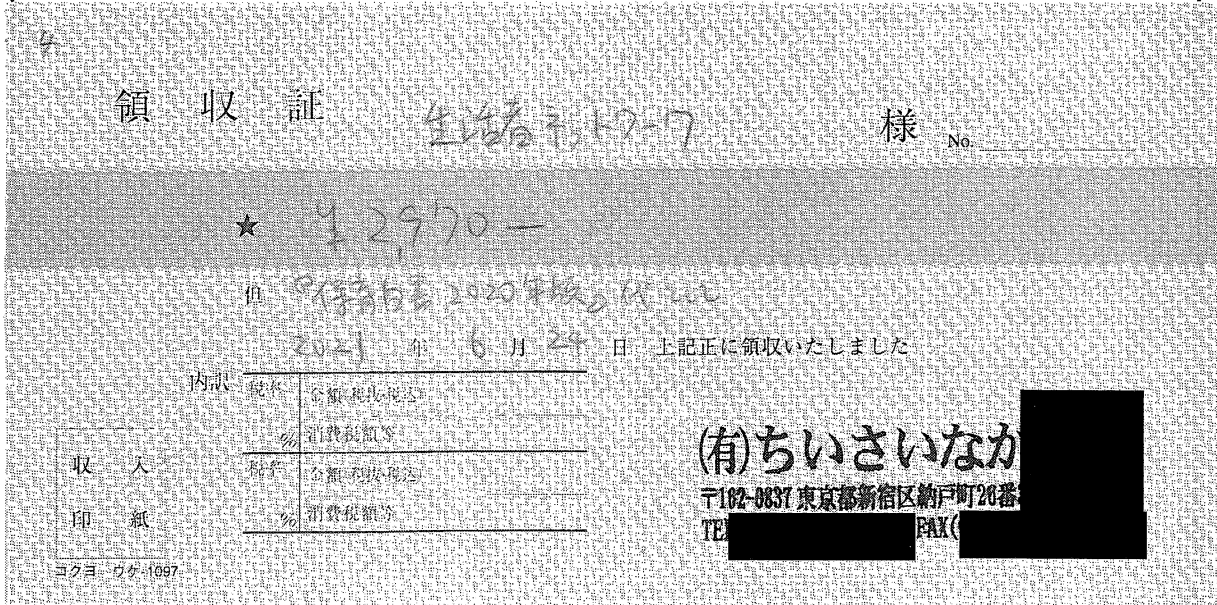 4
領収証 生活者ネットワーク 様 No.
★ ¥2,970-
但 保育白書2020年版の代として
2021年6月24日 上記正に領収いたしました
内訳 税率 金額(税抜・税込)
% 消費税額等
税率 金額(税抜・税込)
% 消費税額等
収入
印紙
コクヨ ウケ-1097
(有)ちいさいなか
〒162-0837 東京都新宿区納戸町26番
TEL FAX(